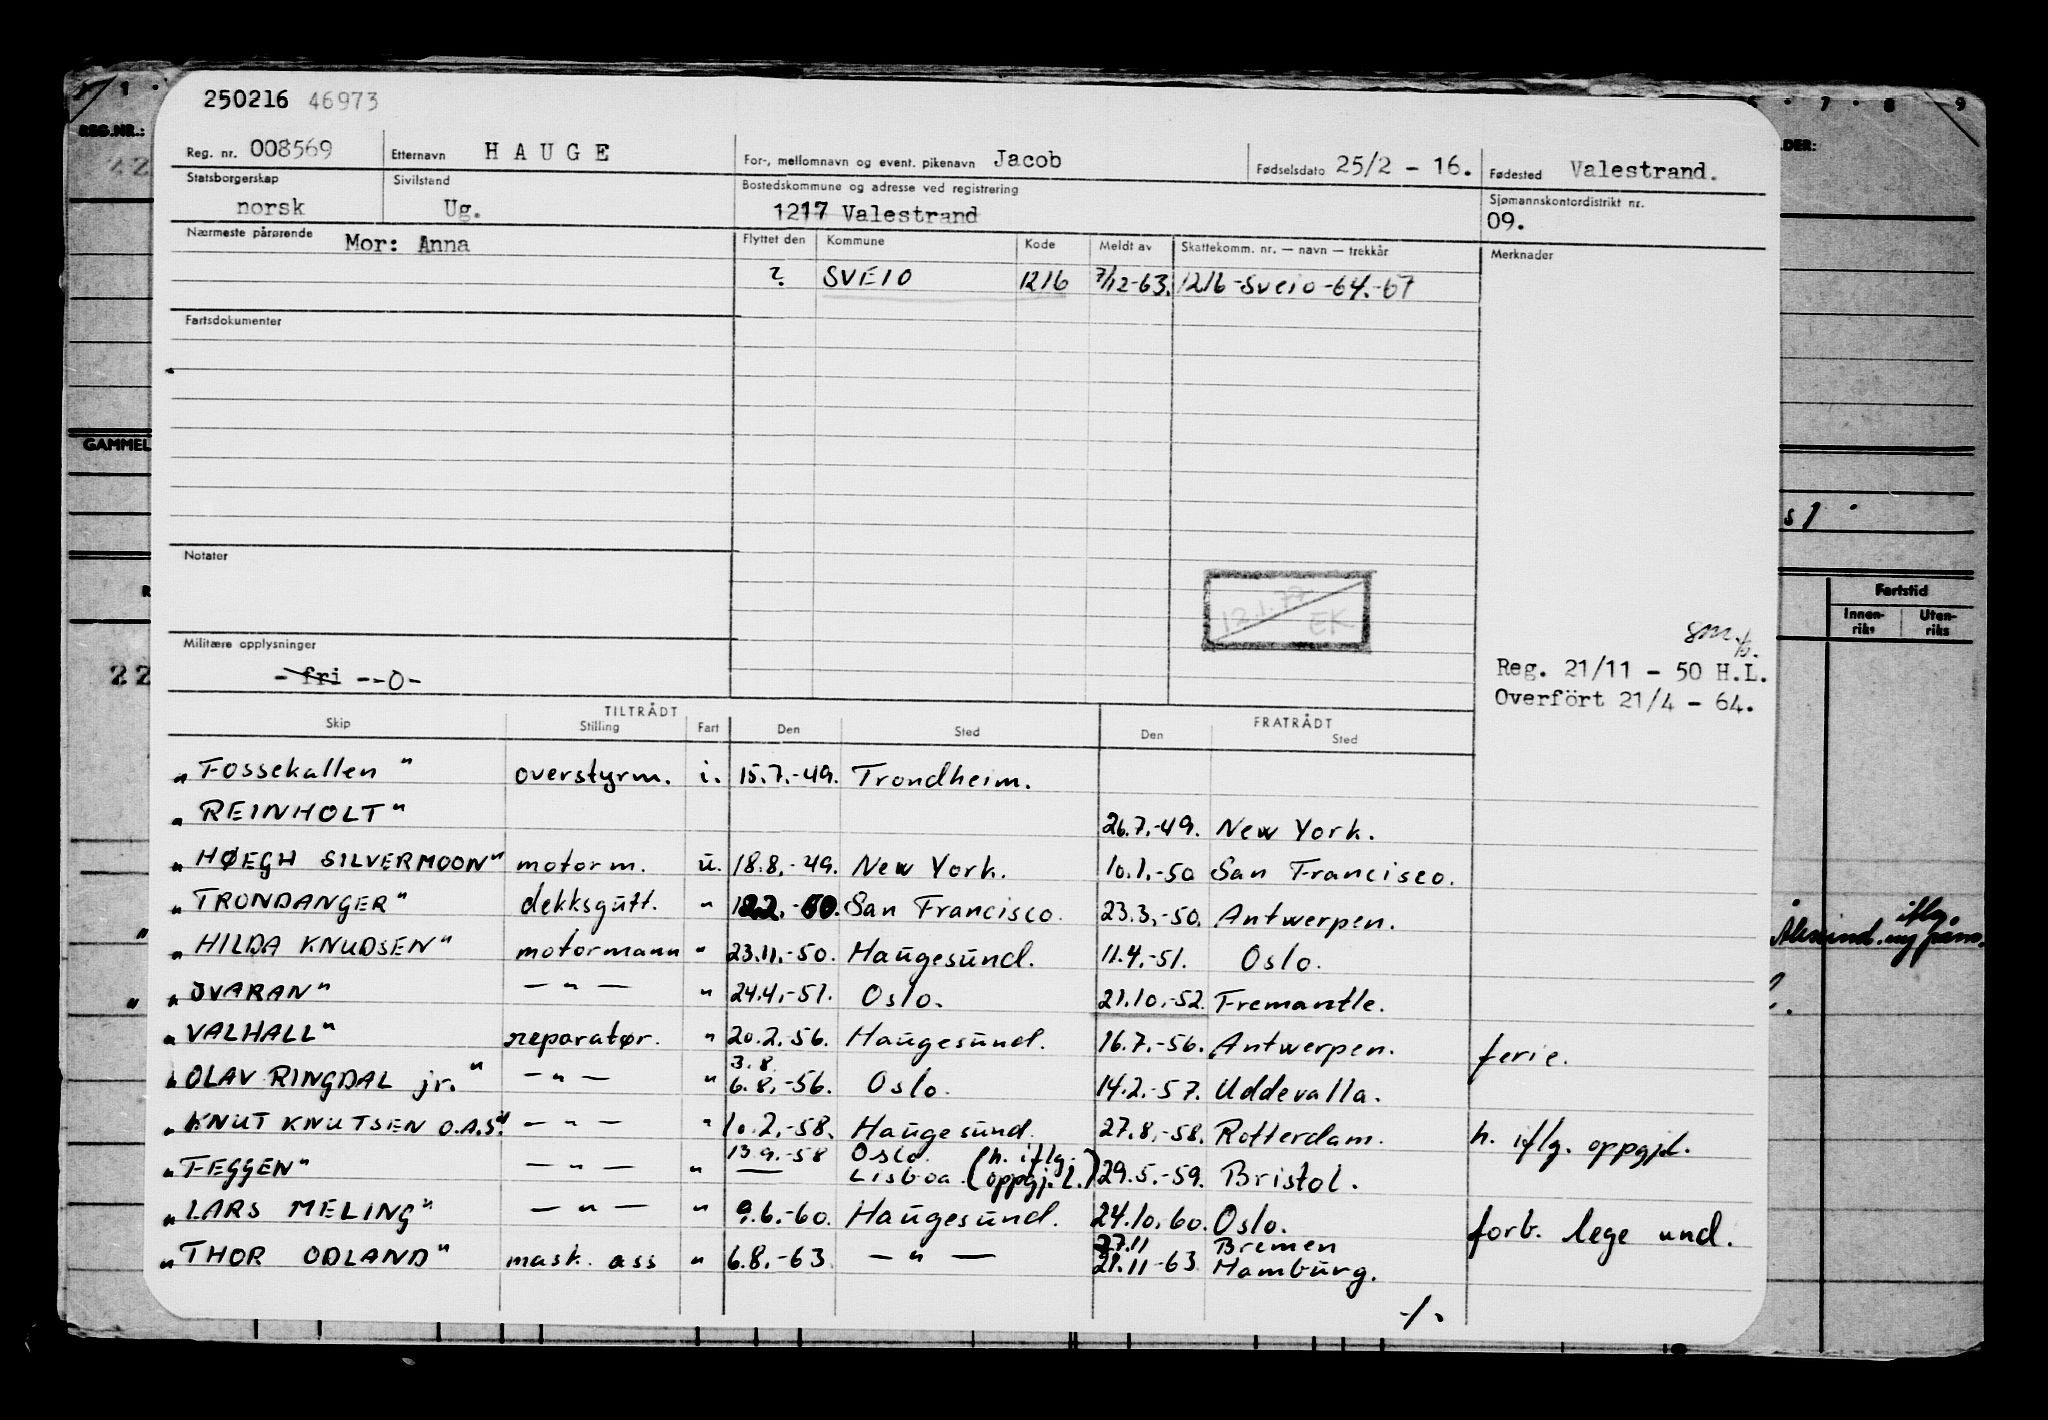 250216 46973
Reg. nr. 008569 Etternavn HAUGE For-, mellomnavn og event. pikenavn Jacob Fødselsdato 25/2 - 16. Fødested Valestrand.
Statsborgerskap norsk Sivilstand Ug. Bostedskommune og adresse ved registrering 1217 Valestrand Sjømannskontordistrikt nr. 09.
Nærmeste pårørende Mor: Anna Flyttet den Kommune Kode Meldt av Skattekomm. nr. — navn — trekkår Merknader
? SVEIO 1216 7/12-63. 1216-Sveio-64.-67
Fartsdokumenter
Notater
12.1.77 EK
Militære opplysninger
- fri --0-
sm.
Reg. 21/11 - 50 H.L.
Overfört 21/4 - 64.
TILTRÅDT FRATRÅDT
Skip Stilling Fart Den Sted Den Sted
"Fossekallen" overstyrm. i. 15.7.-49. Trondheim.
"REINHOLT" 26.7.-49. New York.
"HØEGH SILVERMOON" motorm. u. 18.8.-49. New York. 10.1.-50 San Francisco.
"TRONDANGER" dekksgutt. " San Francisco. 23.3.-50. Antwerpen.
"HILDA KNUDSEN" motormann " 23.11.-50. Haugesund. 11.4.-51. Oslo.
"IVARAN" — " — " 24.4.-51. Oslo. 21.10.-52. Fremantle.
"VALHALL" reparatør. " 20.2.-56. Haugesund. 16.7.-56. Antwerpen. ferie.
"OLAV RINGDAL jr." — " — " 3.8. 6.8.-56. Oslo. 14.2.-57. Uddevalla.
"KNUT KNUTSEN O.A.S." — " — " 10.2.-58. Haugesund. 27.8.-58. Rotterdam. h. iflg. oppgjl.
"TEGGEN" — " — " 13.9.-58 Oslo.
— Lisboa. (h. iflg. oppgj.l.) 29.5.-59. Bristol.
"LARS MELING" — " — " 9.6.-60. Haugesund. 24.10.60. Oslo. forb. lege und.
"THOR ODLAND" mask. ass " 6.8.-63. — " — 27.11 Bremen
21.11-63 Hamburg.
-/.
1
6 · 7 · 8 9
REG.NR.:
22
GAMMEL
22
s1
Fartstid
Innen-riks Uten-riks
iflg.